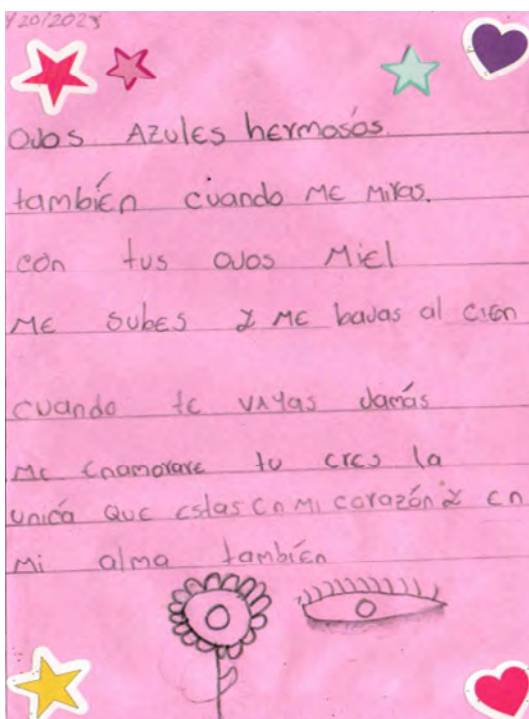 20/2023
Ojos Azules hermosos.
también cuando me miras.
con tus ojos Miel
Me subes y me bajas al cien
cuando te vayas Jamás
Me enamorare tu eres la
unica que estas en mi corazón y en
mi alma también